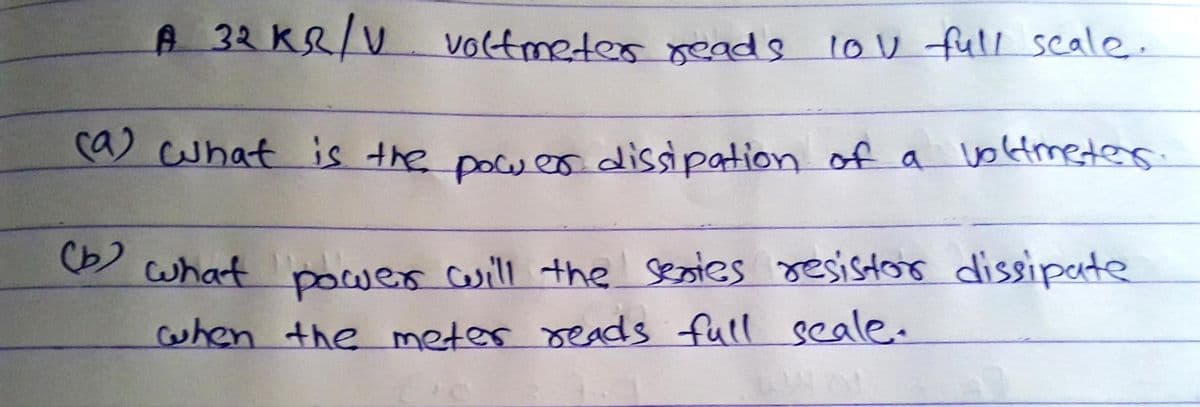 A 32 KΩ/V voltmeter reads 10 V full scale.
(a) what is the power dissipation of a voltmeter.
(b) what power will the series resistor dissipate
when the meter reads full scale.